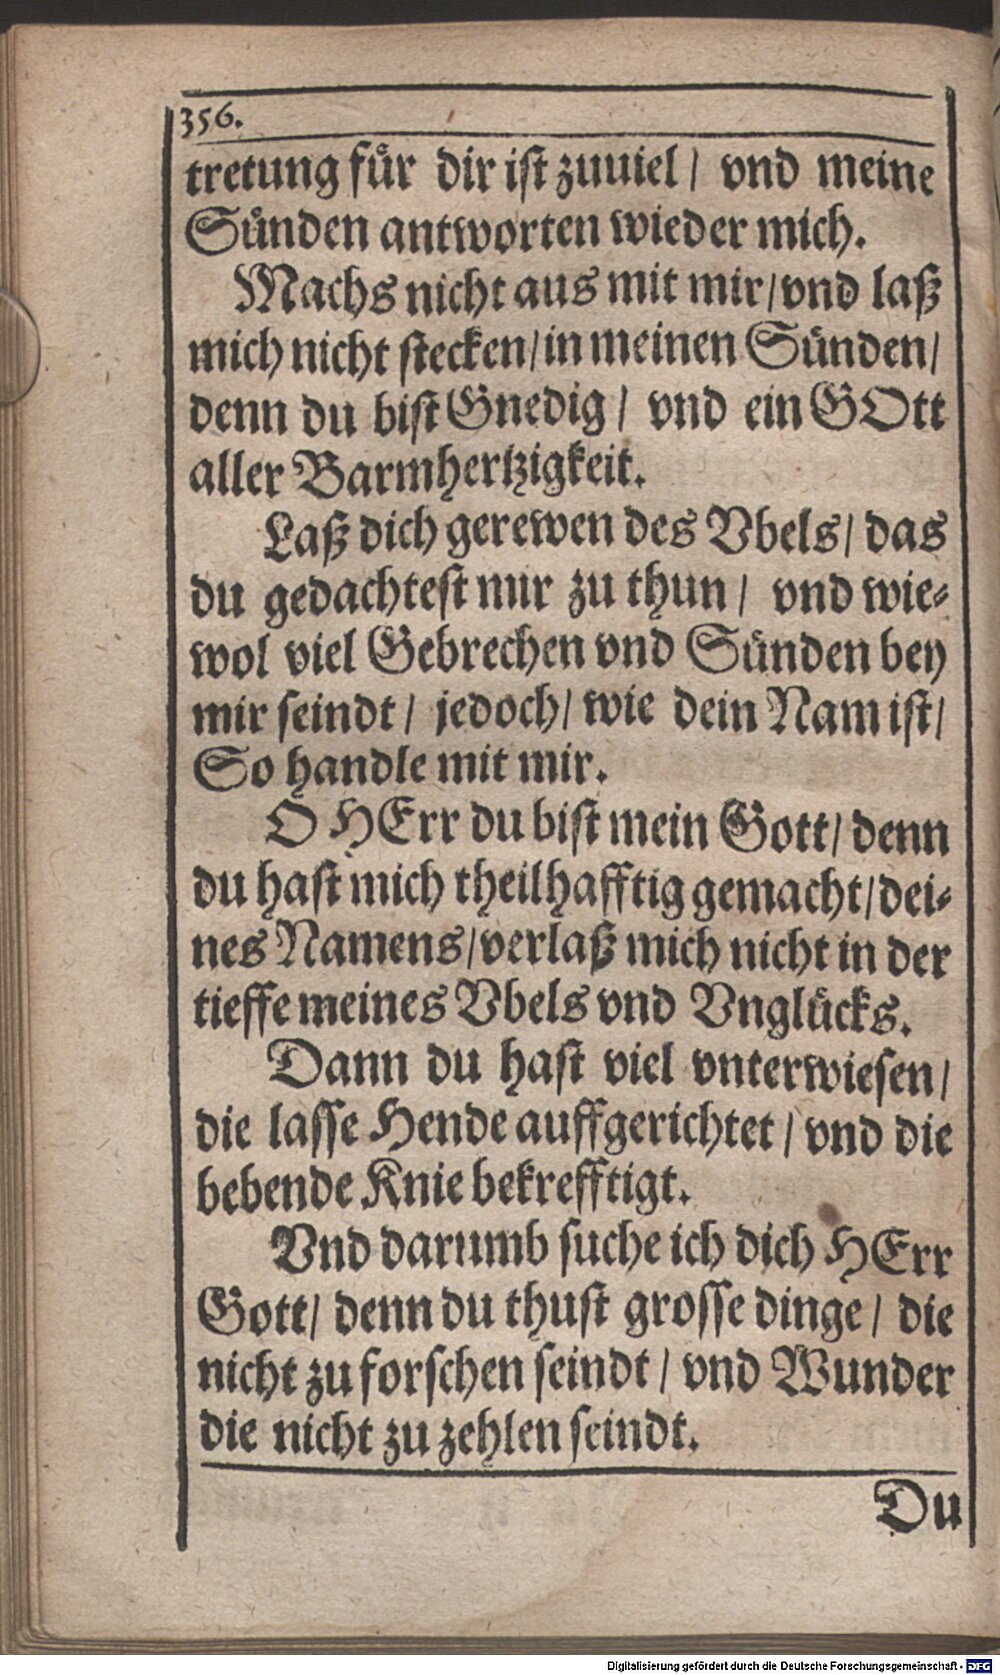 356.
tretung fuͤr dir ist zuuiel / vnd meine
Suͤnden antworten wieder mich.
Machs nicht aus mit mir / vnd laß
mich nicht stecken / in meinen Suͤnden /
denn du bist Gnedig / vnd ein GOtt
aller Barmhertzigkeit.
Laß dich gerewen des Vbels / das
du gedachtest mir zu thun / vnd wie-
wol viel Gebrechen vnd Suͤnden bey
mir seindt / jedoch / wie dein Nam ist /
So handle mit mir.
O HErr du bist mein Gott / denn
du hast mich theilhafftig gemacht / dei-
nes Namens / verlaß mich nicht in der
tieffe meines Vbels vnd Vngluͤcks.
Dann du hast viel vnterwiesen /
die lasse Hende auffgerichtet / vnd die
bebende Knie bekrefftigt.
Vnd darumb suche ich dich HErr
Gott / denn du thust grosse dinge / die
nicht zu forschen seindt / vnd Wunder
die nicht zu zehlen seindt.
Du
Digitalisierung gefördert durch die Deutsche Forschungsgemeinschaft - DFG